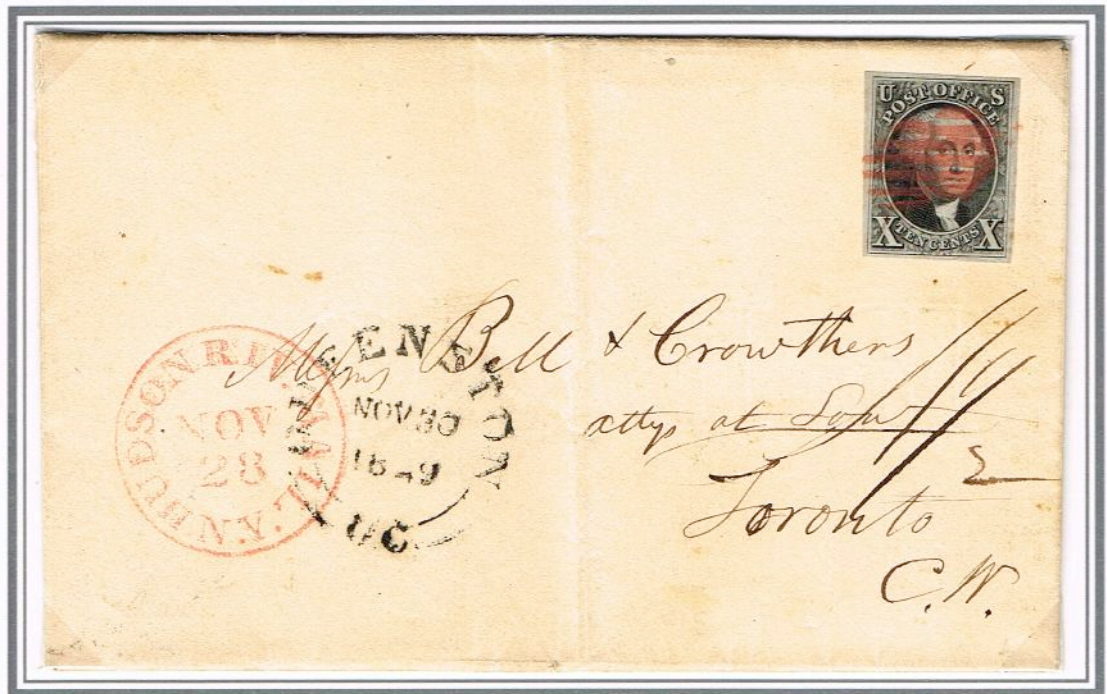 U S
POST OFFICE
X TEN CENTS X
HUDSON RIV. MAIL N.Y.
NOV
28
QUEENSTOWN
NOV 30
1849
U C
Messrs Bell & Crowthers
attys at Law
Toronto
C.W.